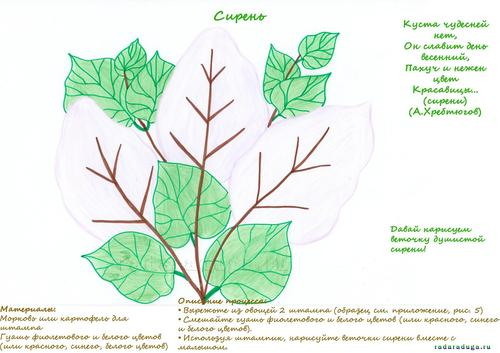 Сирень
Куста чудесней
нет,
Он славит день
весенний,
Пахуч и нежен
цвет
Красавицы...
(сирени)
(А.Хребтюгов)
Давай нарисуем
веточку душистой
сирени!
Материалы:
Морковь или картофель для
штампа
Гуашь фиолетового и белого цветов
(или красного, синего, белого цветов)
Описание процесса:
• Вырежьте из овощей 2 штампа (образец см. приложение, рис. 5)
• Смешайте гуашь фиолетового и белого цветов (или красного, синего
и белого цветов).
• Используя штампик, нарисуйте веточки сирени вместе с
малышом.
radaraduga.ru